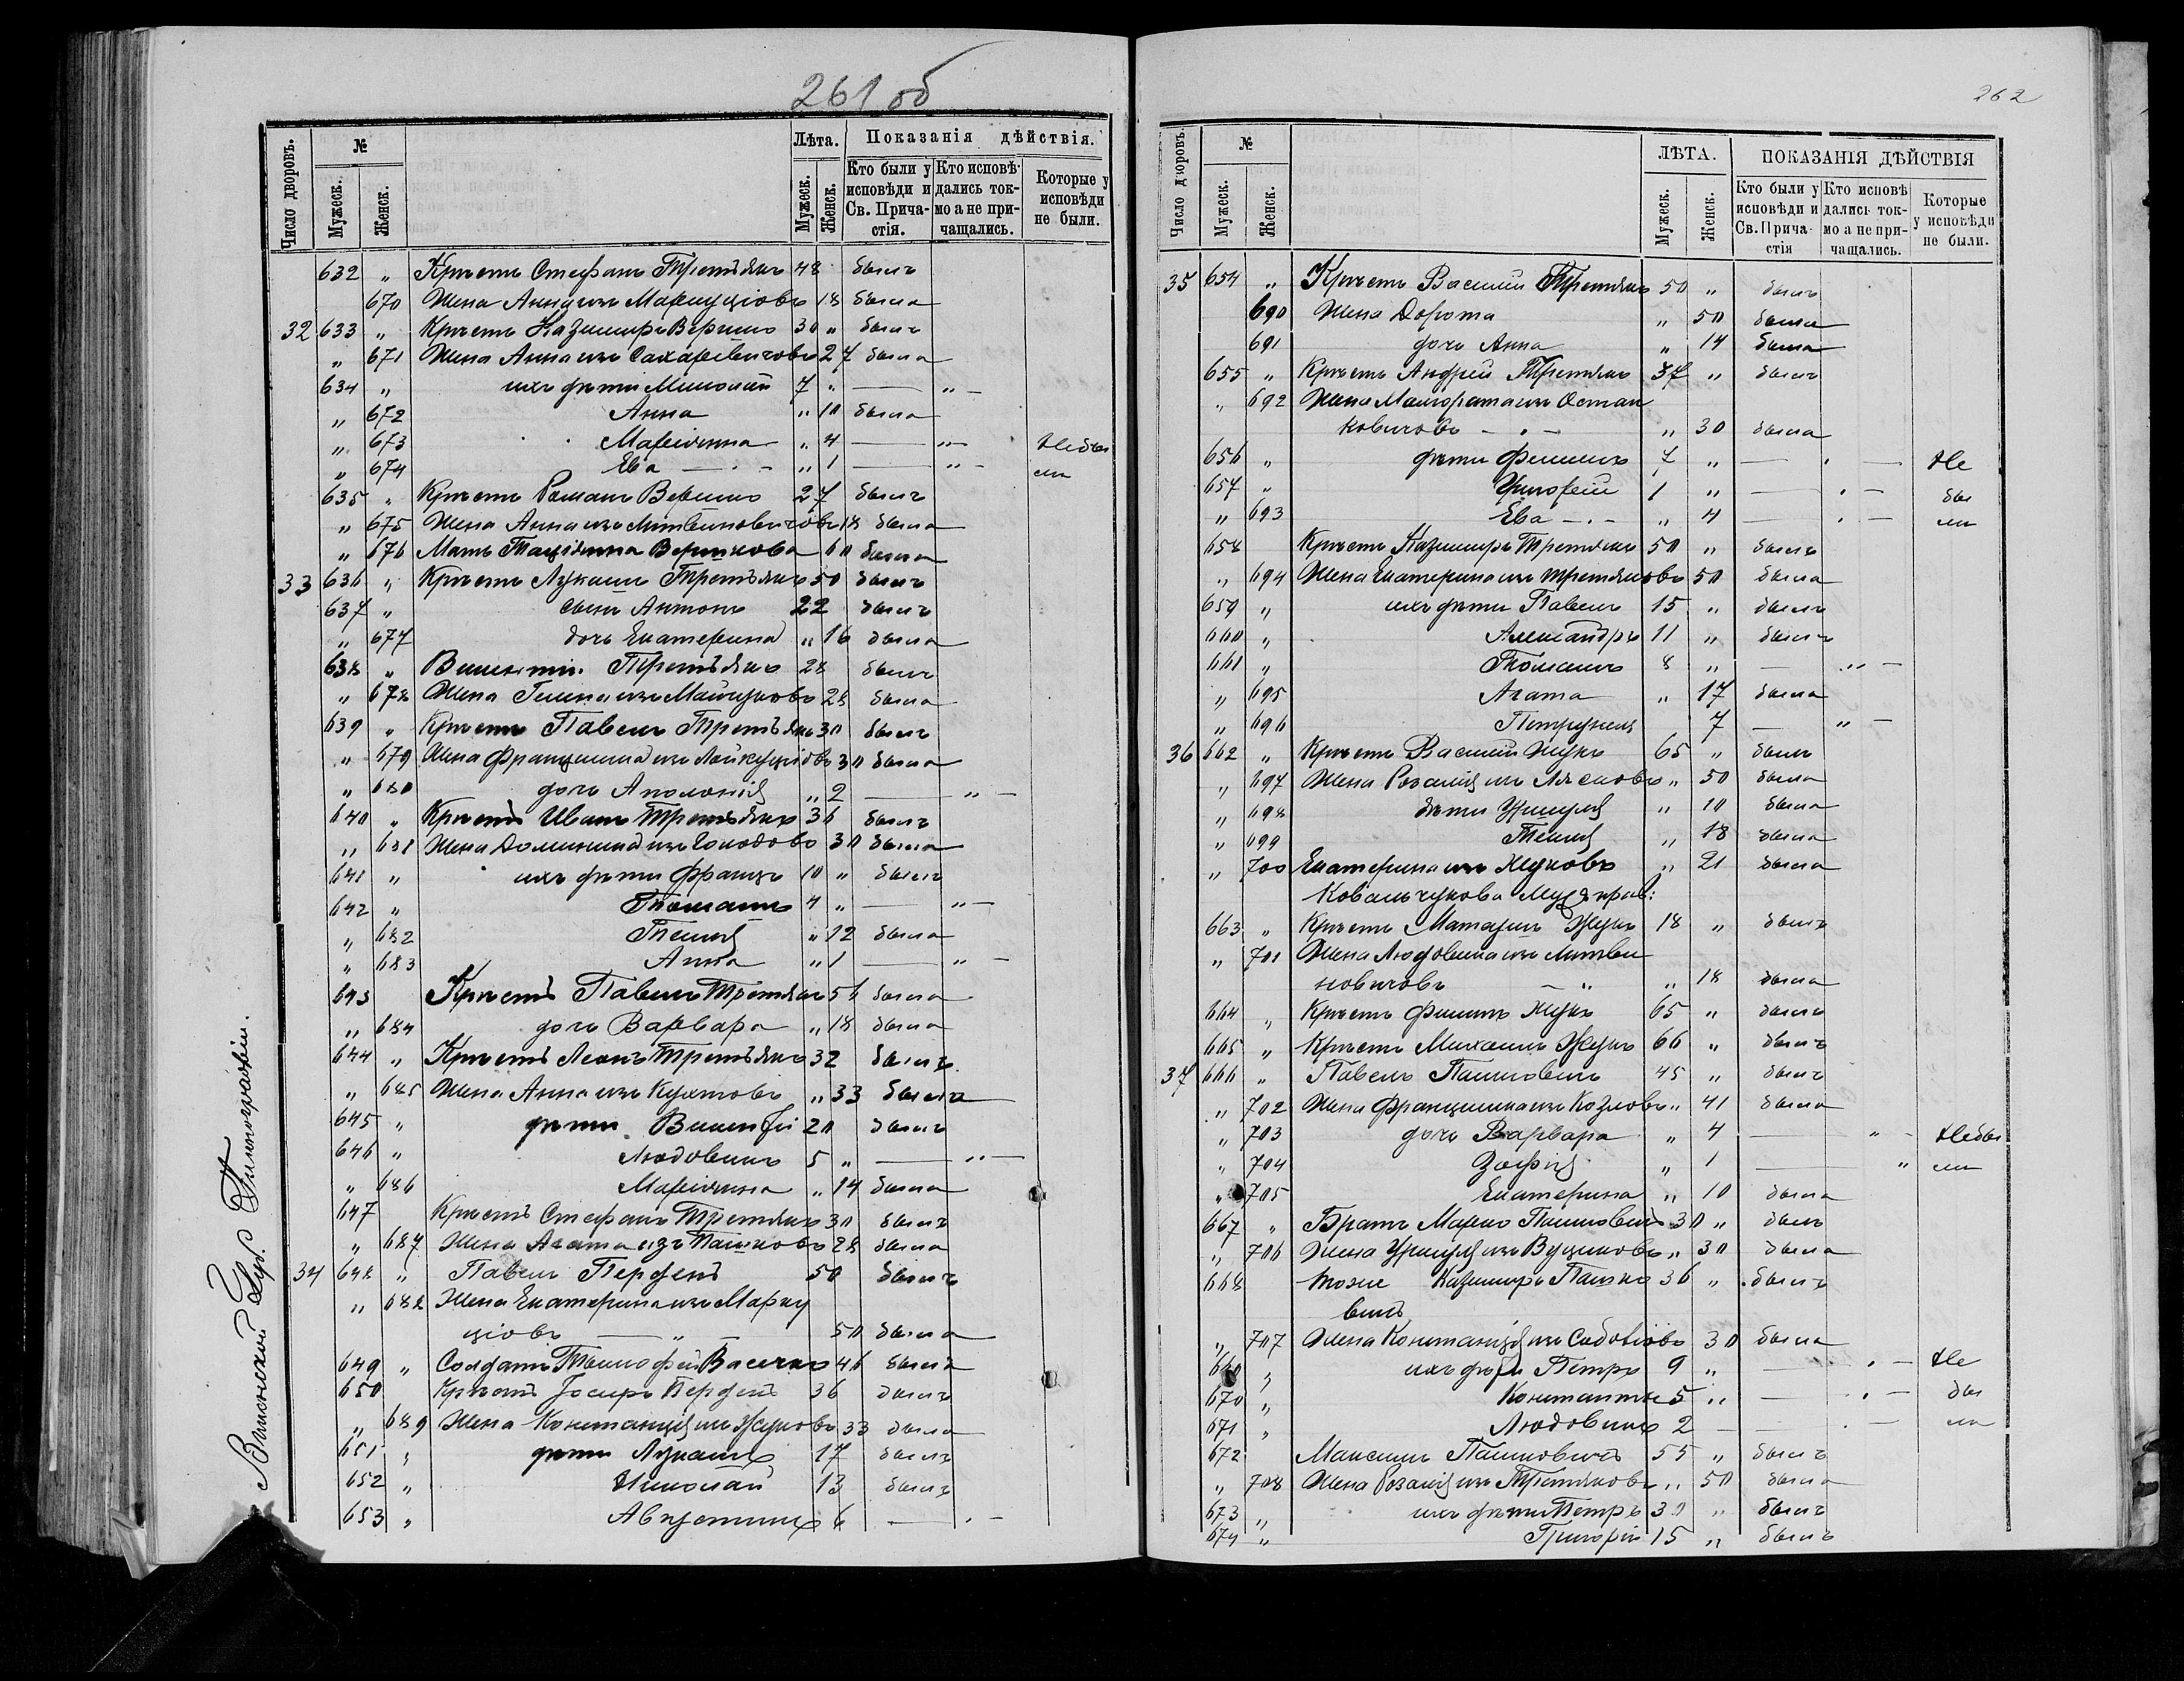 261 об
Число дворовъ.
№
Мужеск.
Женск.
Лѣта.
Мужеск.
Женск.
Показанія дѣйствія.
Кто были у исповѣди и Св. Прича-стія.
Кто исповѣ-дались ток-мо а не при-чащались.
Которые у исповѣди не были.
632 „ Крестъ Стефанъ Третьякъ 48 былъ
670 Жена Анна изъ 18 была
32 633 „ Крестъ Казимиръ Вершко 30 „ былъ
„ 671 Жена Анна изъ Сахаревичовъ 27 была
634 „ ихъ дѣти Николай 7 „ — „ —
„ 672 Анна „ 10 была
„ 673 Маріянна „ 4 — „ — Небы
„ 674 Ева — „ 1 — „ — ли
635 „ Крестъ Романъ Вершко 27 былъ
„ 675 Жена Анна изъ Литвиновичовъ 18 была
„ 676 Мать Таціянна Вершкова 60 была
33 636 „ Крестъ Лукашъ Третьякъ 50 былъ
637 „ сынъ Антонъ 22 былъ
„ 677 дочь Екатерина „ 16 была
638 „ Викентій Третьякъ 28 былъ
„ 678 Жена 28 была
639 „ Крестъ Павелъ Третьякъ 30 былъ
„ 679 Жена Францишка изъ 30 была
„ 680 дочь Аполонія „ 2 — „ —
640 „ Крестъ Иванъ Третьякъ 36 былъ
„ 681 Жена Доминика изъ 30 была
641 „ ихъ дѣти Францъ 10 „ былъ
642 „ Томашъ 4 „ — „ —
„ 682 Текля „ 12 была
„ 683 Анна „ 1 — „ —
643 Крестъ Павелъ Третьякъ 56 была
„ 684 дочь Варвара „ 18 была
644 „ Крестъ Леонъ Третьякъ 32 былъ
„ 685 Жена Анна изъ Кухтовъ „ 33 была
645 „ дѣти Викентій 20 былъ
646 „ Людовикъ 5 „ — „ —
„ 686 Маріянна „ 14 была
647 Крестъ Стефанъ Третьякъ 30 былъ
„ 687 Жена Агата изъ Пашковъ 28 была
34 648 „ Павелъ Перденъ 50 былъ
„ 688 Жена Екатерина изъ Марку
ціовъ — „ — 50 была
649 „ Солдатъ Тимофей 46 былъ
650 Крестъ Іосифъ Перденъ 36 былъ
„ 689 Жена Констанція изъ Жуковъ 33 была
651 „ дѣти Лукашъ 17 былъ
652 „ Николай 13 былъ
653 „ Августинъ 6 — „ —
Виленская Губ. Типографія.
262
Число дворовъ.
№
Мужеск.
Женск.
ЛѢТА.
Мужеск.
Женск.
ПОКАЗАНІЯ ДѢЙСТВІЯ
Кто были у исповѣди и Св. Прича-стія
Кто исповѣ дались ток-мо а не при-чащались.
Которые у исповѣди не были.
35 654 „ Крестъ Василій Третьякъ 50 „ былъ
690 Жена Дорота „ 50 была
691 дочь Анна „ 14 была
655 „ Крестъ Андрей Третьякъ 37 „ былъ
„ 692 Жена Малгората изъ Остап
ковичовъ — „ — „ 30 была
656 „ дѣти Филипъ 7 „ — „ — Не
657 „ Григорій 1 „ — „ — бы
„ 693 Ева — „ — „ 4 — „ — ли
658 Крестъ Казимиръ Третьякъ 50 „ былъ
„ 694 Жена Екатерина изъ Третьяковъ 50 была
659 „ ихъ дѣти Павелъ 15 „ былъ
660 „ Александръ 11 „ былъ
661 „ Томашъ 8 „ — „ —
„ 695 Агата „ 17 была
„ 696 Петрунеля 7 — „ —
36 662 „ Крестъ Василій Жукъ 65 „ былъ
„ 697 Жена Розалія изъ „ 50 была
„ 698 дѣти Уршуля „ 10 была
„ 699 Текля „ 18 была
„ 700 Екатерина изъ Жуковъ „ 21 была
Ковальчукова
663 „ Крестъ Матеушъ Жукъ 18 „ былъ
„ 701 Жена Людовика изъ Литви
новичовъ — „ „ 18 была
664 „ Крестъ Филипъ Жукъ 65 „ былъ
665 „ Крестъ Михаилъ Жукъ 66 „ былъ
37 666 „ Павелъ Пашкевичъ 45 „ былъ
„ 702 Жена Францишка изъ Козловъ „ 41 была
„ 703 дочь Варвара „ 4 — „ — Небы
„ 704 Зофія „ 1 — „ ли
„ 705 Екатерина „ 10 была
667 „ Братъ Марко Пашковичъ 30 „ былъ
„ 706 Жена Уршуля изъ „ 30 была
668 тоже Казимиръ Пашко 36 „ былъ
вичъ
„ 707 Жена Констанція изъ 30 была
669 „ ихъ дѣти Петръ 9 „ — „ — Не
670 „ Константинъ 5 „ — „ — бы
671 „ Людовикъ 2 — — ли
672 Максимъ Пашковичъ 55 „ былъ
„ 708 Жена Розалія изъ Третьяковъ „ 50 была
673 „ ихъ дѣти Петръ 30 „ былъ
674 „ Григорій 15 „ былъ